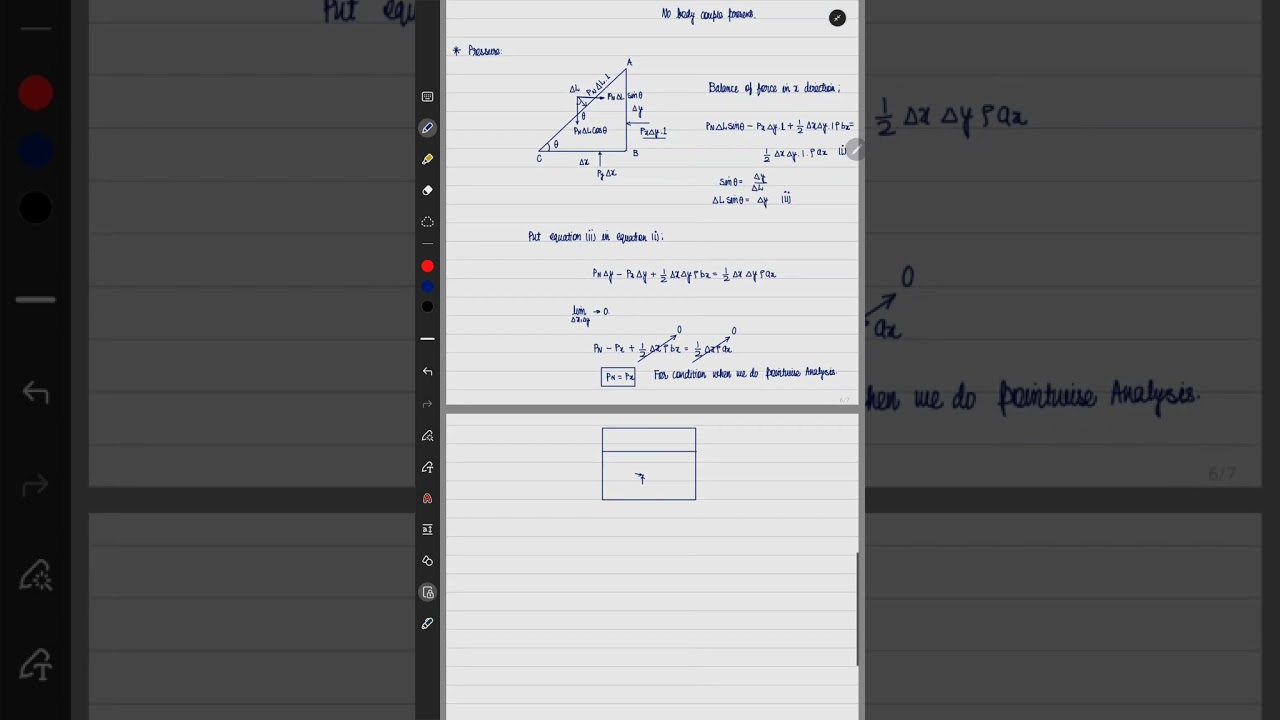 No body couple present.
* Pressure:
A
ΔL
PN ΔL.1
PN ΔL sinθ
θ
Δy
PN ΔL cosθ
Px Δy.1
θ
C
Δx
B
Py Δx
Balance of force in x direction;
PN ΔL sinθ − Px Δy.1 + 1/2 Δx Δy.1 ρ bx =
1/2 Δx Δy.1.ρ ax (i)
sinθ = Δy/ΔL
ΔL sinθ = Δy (ii)
Put equation (ii) in equation (i);
PN Δy − Px Δy + 1/2 Δx Δy ρ bx = 1/2 Δx Δy ρ ax
lim Δx,Δy → 0
0 0
PN − Px + 1/2 Δx ρ bx = 1/2 Δx ρ ax
PN = Px For condition when we do pointwise Analysis.
6/7
Put equ
1/2 Δx Δy ρ ax
0
ax
hen we do pointwise Analysis.
6/7